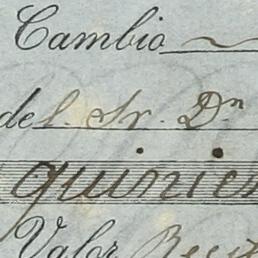 Cambio
del. Sr. Dn
quinien
Valor Reci